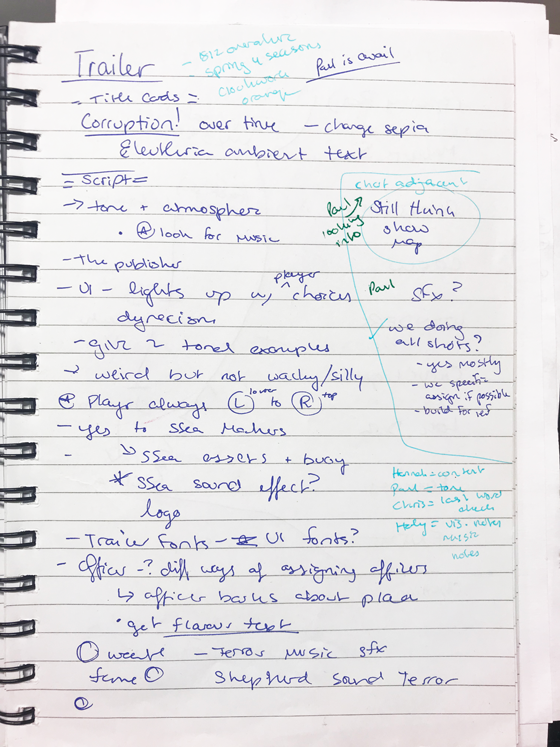 Trailer
- 812 overature
spring 4 seasons
Clockwork
orange
Paul is avail
= Title Cards =
Corruption! over time - change sepia
Eleutheria ambient text
= Script =
→ tone + atmosphere
• (A) look for music
- the publisher
- UI - lights up w/ player choices
dynecism
- give 2 tonal examples
→ weird but not wacky/silly
Player always (L) lower to (R) top
- yes to SSea Makers
-
↳ SSea assets + busy
* SSea sound effect?
logo
- Trailer Fonts - UI fonts?
- Officer -? diff ways of assigning officers
↳ officer barks about place
• get flavour text
weave - Terror music sfx
fame
Shepherd sound Terror
chat adjacent
Still thing
show
map
Paul
looking
into
Paul
sfx?
we doing
all shots?
- yes mostly
- we specific
assign if possible
- build for ref
Hannah = content
Paul = tone
Chris = last word
check
Haly = vis. notes
music
notes